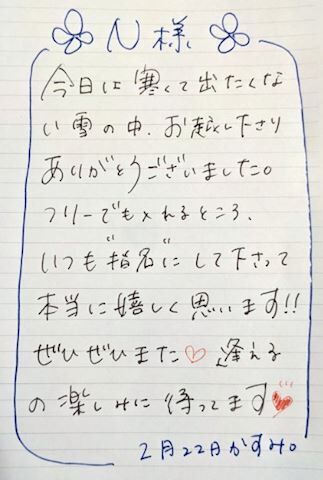 N様
今日は寒くて出たくな
い雪の中、お越し下さり
ありがとうございました。
フリーでも入れるところ、
いつも"指名"にして下さって
本当に嬉しく思います!!
ぜひぜひまた♡ 逢える
の楽しみに待ってます♥
2月22日かすみ。